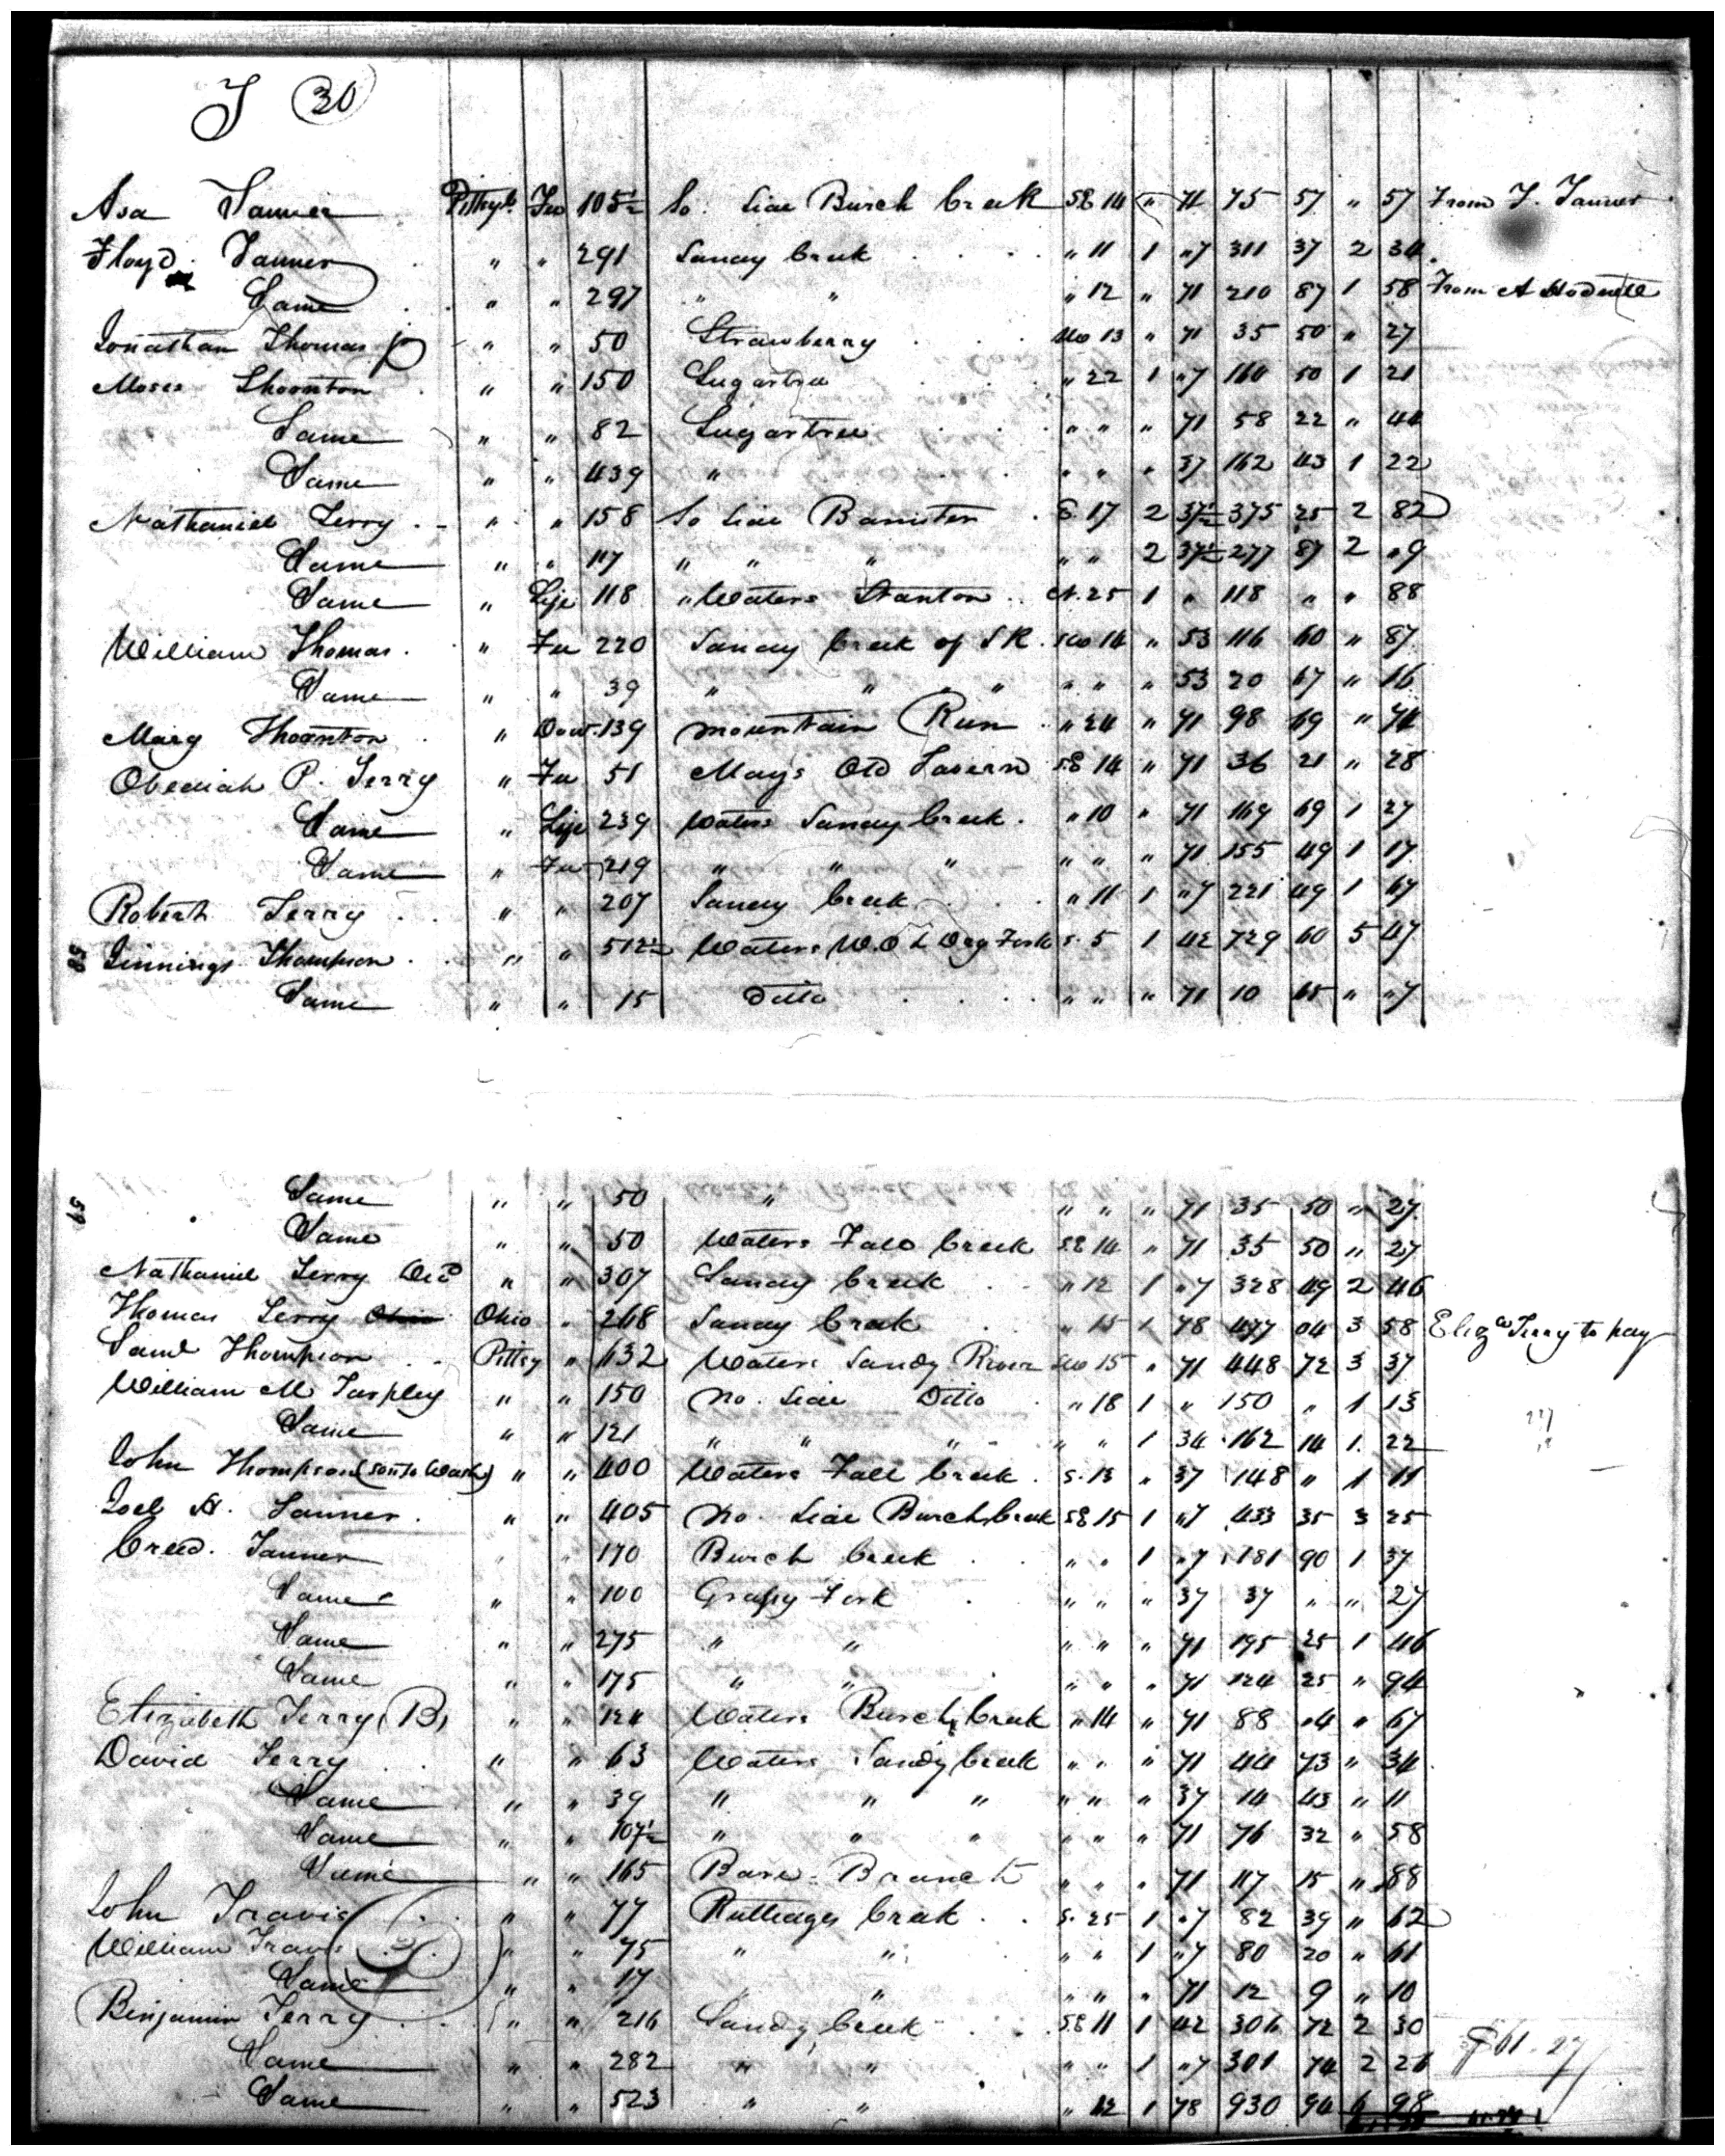 T 30
Asa Tanner Pittsylv. Fee 105½ So. Side Burch Creek SE 14 " 71 75 57 " 57 From F. Tanner
Floyd Tanner " " 291 Sandy Creek " 11 1 "7 311 37 2 34
Same " " 297 " " " 12 " 71 210 87 1 58 From A
Jonathan Thomas jr " " 50 Strawberry No 13 " 71 35 50 " 27
Moses Thornton " " 150 Sugartree " 22 1 "7 160 50 1 21
Same " " 82 Sugartree " " " 71 58 22 " 44
Same " " 439 " " " " 37 162 43 1 22
Nathaniel Terry " " 158 So Side Banister S. 17 2 37½ 375 25 2 82
Same " " 117 " " " " " 2 37½ 277 87 2 "9
Same " Life 118 " Waters Stanton N. 25 1 " 118 " " 88
William Thomas " Fee 220 Sandy Creek of S R. No 14 " 53 116 60 " 87
Same " " 39 " " " " " " " 53 20 67 " 16
Mary Thornton " Dow. 139 Mountain Run " 24 " 71 98 69 " 74
Obediah P. Terry " Fee 51 Mays Old Tavern SE 14 " 71 36 21 " 28
Same " Life 239 Waters Sandy Creek " 10 " 71 169 69 1 27
Same " Fee 219 " " " " " " 71 155 49 1 17
Robert Terry " " 207 Sandy Creek " 11 1 "7 221 49 1 67
58 Jinnings Thompson " " 512½ Waters W. O & Dry Fork S. 5 1 42 729 60 5 47
Same " " 15 Ditto " " " 71 10 65 " "7
59 Same " " 50 " " " " 71 35 50 " 27
Same " " 50 Waters Fall Creek SE 14 " 71 35 50 " 27
Nathaniel Terry Decd " " 307 Sandy Creek " 12 1 "7 328 49 2 46
Thomas Terry Ohio " 268 Sandy Creek " 15 1 78 477 04 3 58 Eliza Terry to pay
Saml Thompson Pittsy " 632 Waters Sandy River No 15 " 71 448 72 3 37
William M Tarpley " " 150 No. Side Ditto " 18 1 " 150 " 1 13
Same " " 121 " " " " " 1 34 162 14 1 22
John Thompson (son to Wash) " " 400 Waters Fall Creek S. 13 " 37 148 " 1 11
Joel H. Tanner " " 405 No. Side Burch Creek SE 15 1 "7 433 35 3 25
Creed Tanner " " 170 Burch Creek " " 1 "7 181 90 1 37
Same " " 100 Grassy Fork " " " 37 37 " " 27
Same " " 275 " " " " " 71 195 25 1 46
Same " " 175 " " " " " 71 124 25 " 94
Elizabeth Terry (B) " " 124 Waters Burch Creek " 14 " 71 88 "4 " 67
David Terry " " 63 Waters Sandy Creek " " " 71 44 73 " 34
Same " " 39 " " " " " " 37 14 43 " 11
Same " " 107½ " " " " " " 71 76 32 " 58
Same " " 165 Bare Branch " " " 71 117 15 " 88
John Travis " " 77 Rutledges Creek S. 25 1 "7 82 39 " 62
William Travis " " 75 " " " " 1 "7 80 20 " 61
Same " " 17 " " " " " 71 12 9 " 10
Benjamin Terry " " 216 Sandy Creek SE 11 1 42 306 72 2 30
Same " " 282 " " " " 1 "7 301 74 2 26 $61.27
Same " " 523 " " " 12 1 78 930 94 6 98